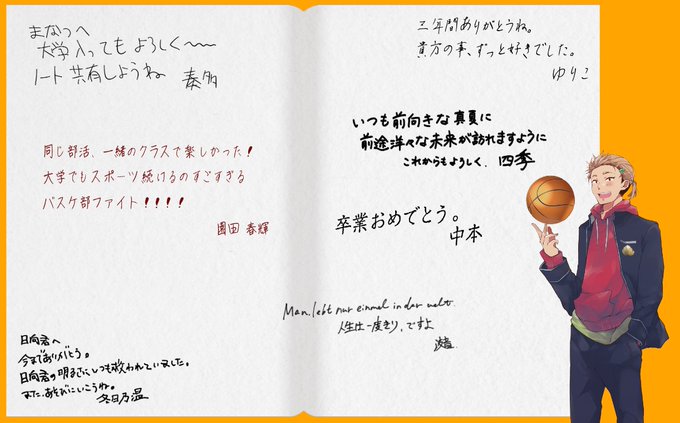 まなつへ
大学入ってもよろしく〜〜
ノート共有しようね 奏多
同じ部活、一緒のクラスで楽しかった！
大学でもスポーツ続けるのすごすぎる
バスケ部ファイト！！！！
園田 春輝
日向君へ
今までありがとう。
日向君の明るさに、いつも救われていました。
また、あそびにいこうね。
冬日乃温
三年間ありがとうね。
貴方の事、ずっと好きでした。
ゆりこ
いつも前向きな真夏に
前途洋々な未来が訪れますように
これからもよろしく、四季
卒業おめでとう。
中本
Man lebt nur einmal in der welt.
人生は一度きり、ですよ